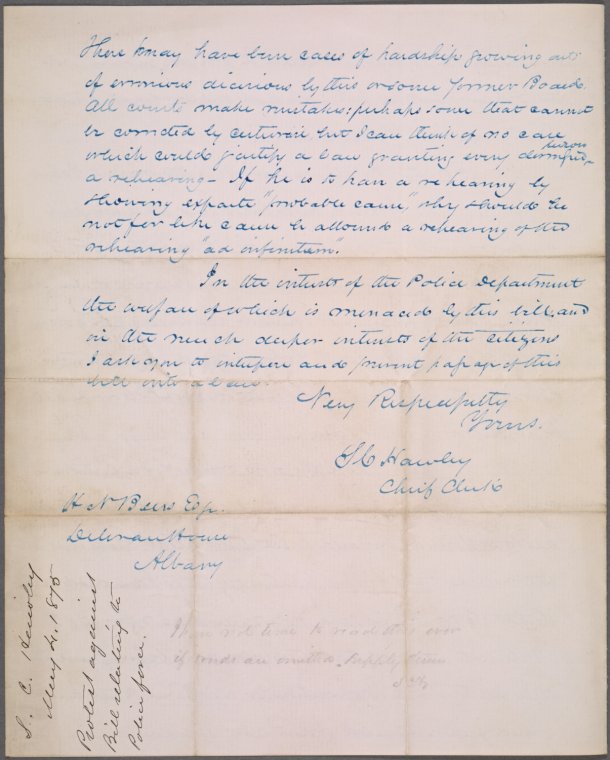 There may have been cases of hardship growing out
of erronious dicisions by this or some former Board.
All courts make mistakes: perhaps some that cannot
be corrected by but I can think of no case
which could justify a law granting every dismissed person
a rehearing - If he is to have a rehearing by
showing exparte "probable cause", why should he
not for like cause be allowed a rehearing of the
rehearing "ad infinitum".
In the intrests of the Police Department
the welfare of which is menaced by this bill, and
in the much deeper intrests of the Citizens
I ask you to interpose and prevent passage of this
bill into a law.
Very Respectfully
Yours.
S C Hawley
Chief Clerk
H N Beers Esq.
Delevan House
Albany
I have not time to read this over
if words are omitted. Supply them
S H
S. C. Hawley
May 4. 1875
Protest against
Bill relating to
Police force.